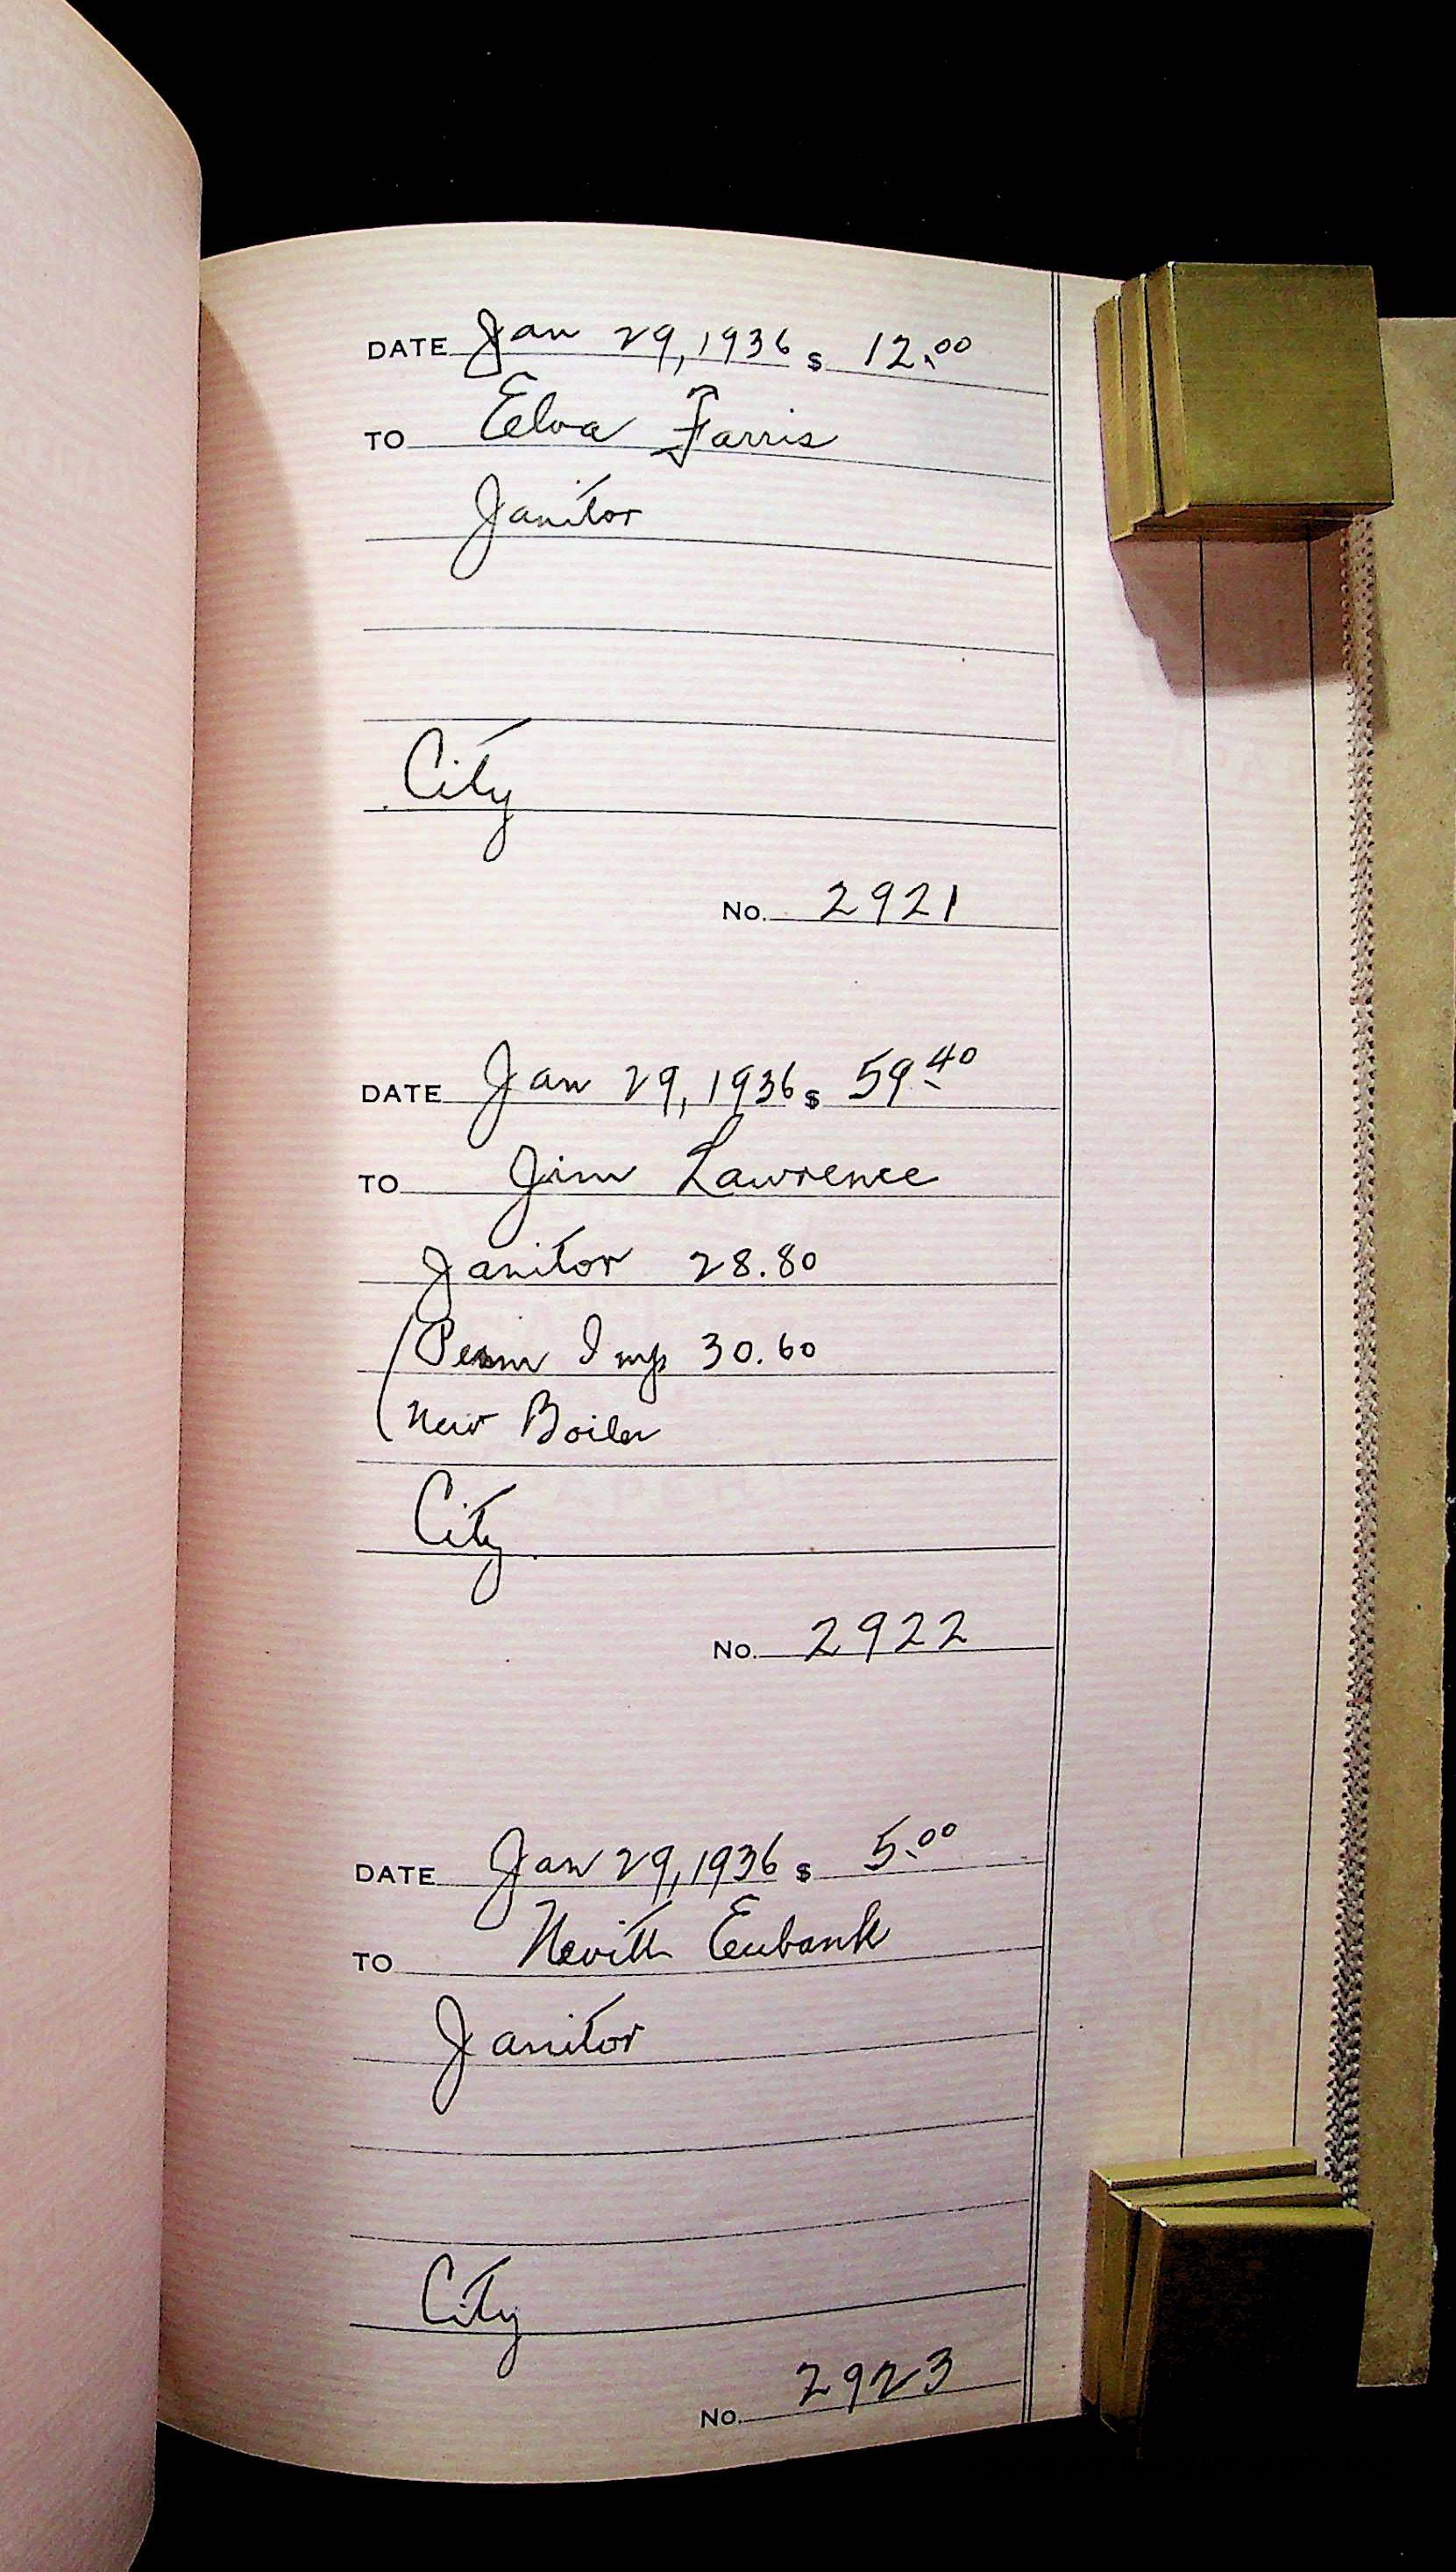 DATE Jan 29, 1936 $ 12.00
TO Elva Farris
Janitor
City
No. 2921
DATE Jan 29, 1936 $ 59.40
TO Jim Lawrence
Janitor 28.80
(Perm Imp 30.60
(New Boiler
City
No. 2922
DATE Jan 29, 1936 $ 5.00
TO Nevitt Eubank
Janitor
City
No. 2923